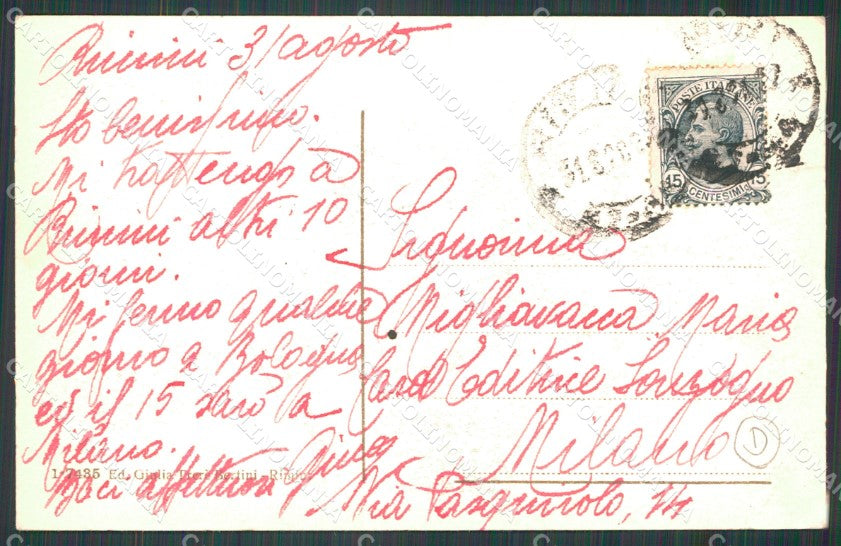 Rimini 31 agosto
Sto benissimo.
Mi trattengo a
Rimini altri 10
giorni.
Mi fermo qualche
giorno a Bologna
ed il 15 sarò a
Milano.
Baci affettuosi
Signorina
Migliavacca Maria
Casa Editrice Sonzogno
Milano
Via Pasquirolo, 14
POSTE ITALIANE
15 CENTESIMI 15
31.8.20
1-7485 Ed. Giulia Tierè Bertini - Rimini
D
CARTOLINOMANIA